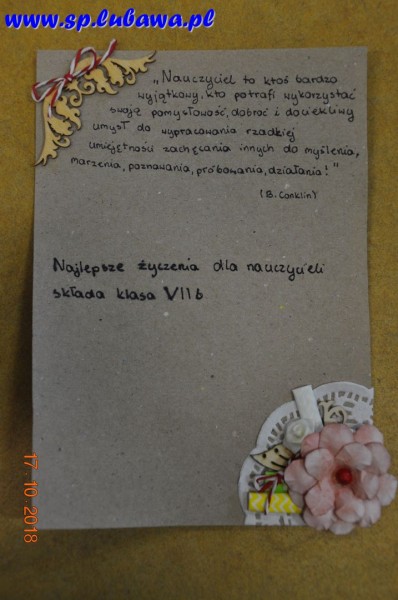 www.sp.lubawa.pl
„Nauczyciel to ktoś bardzo
wyjątkowy, kto potrafi wykorzystać
swoją pomysłowość, dobroć i dociekliwy
umysł do wypracowania rzadkiej
umiejętności zachęcania innych do myślenia,
marzenia, poznawania, próbowania, działania!"
(B. Conklin)
Najlepsze życzenia dla nauczycieli
składa klasa VII b
17 10 2018